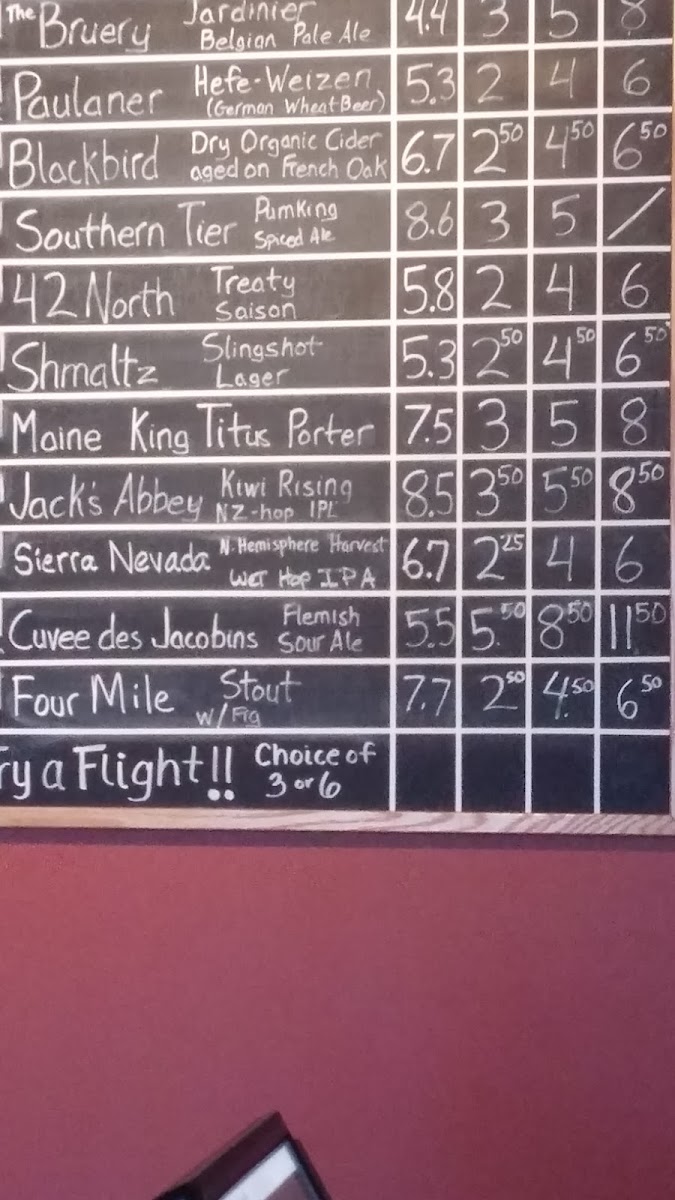 The Bruery Jardinier Belgian Pale Ale 4.4 3 5 8
Paulaner Hefe-Weizen (German Wheat Beer) 5.3 2 4 6
Blackbird Dry Organic Cider aged on French Oak 6.7 2.50 4.50 6.50
Southern Tier Pumking Spiced Ale 8.6 3 5 /
42 North Treaty Saison 5.8 2 4 6
Shmaltz Slingshot Lager 5.3 2.50 4.50 6.50
Maine King Titus Porter 7.5 3 5 8
Jack's Abbey Kiwi Rising NZ-hop IPL 8.5 3.50 5.50 8.50
Sierra Nevada N. Hemisphere Harvest Wet Hop IPA 6.7 2.25 4 6
Cuvee des Jacobins Flemish Sour Ale 5.5 5.50 8.50 11.50
Four Mile Stout w/Fig 7.7 2.50 4.50 6.50
ry a Flight!! Choice of 3 or 6